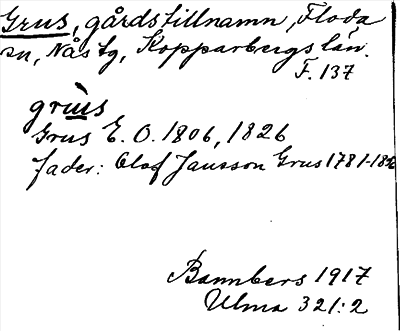 Grus, gårdstillnamn, Floda
sn, Nås tg, Kopparbergs län.
F. 137
grùs
Grus E. O. 1806, 1826
fader: Olof Jansson Grus 1781-18
Bannbers 1917
Ulma 321:2